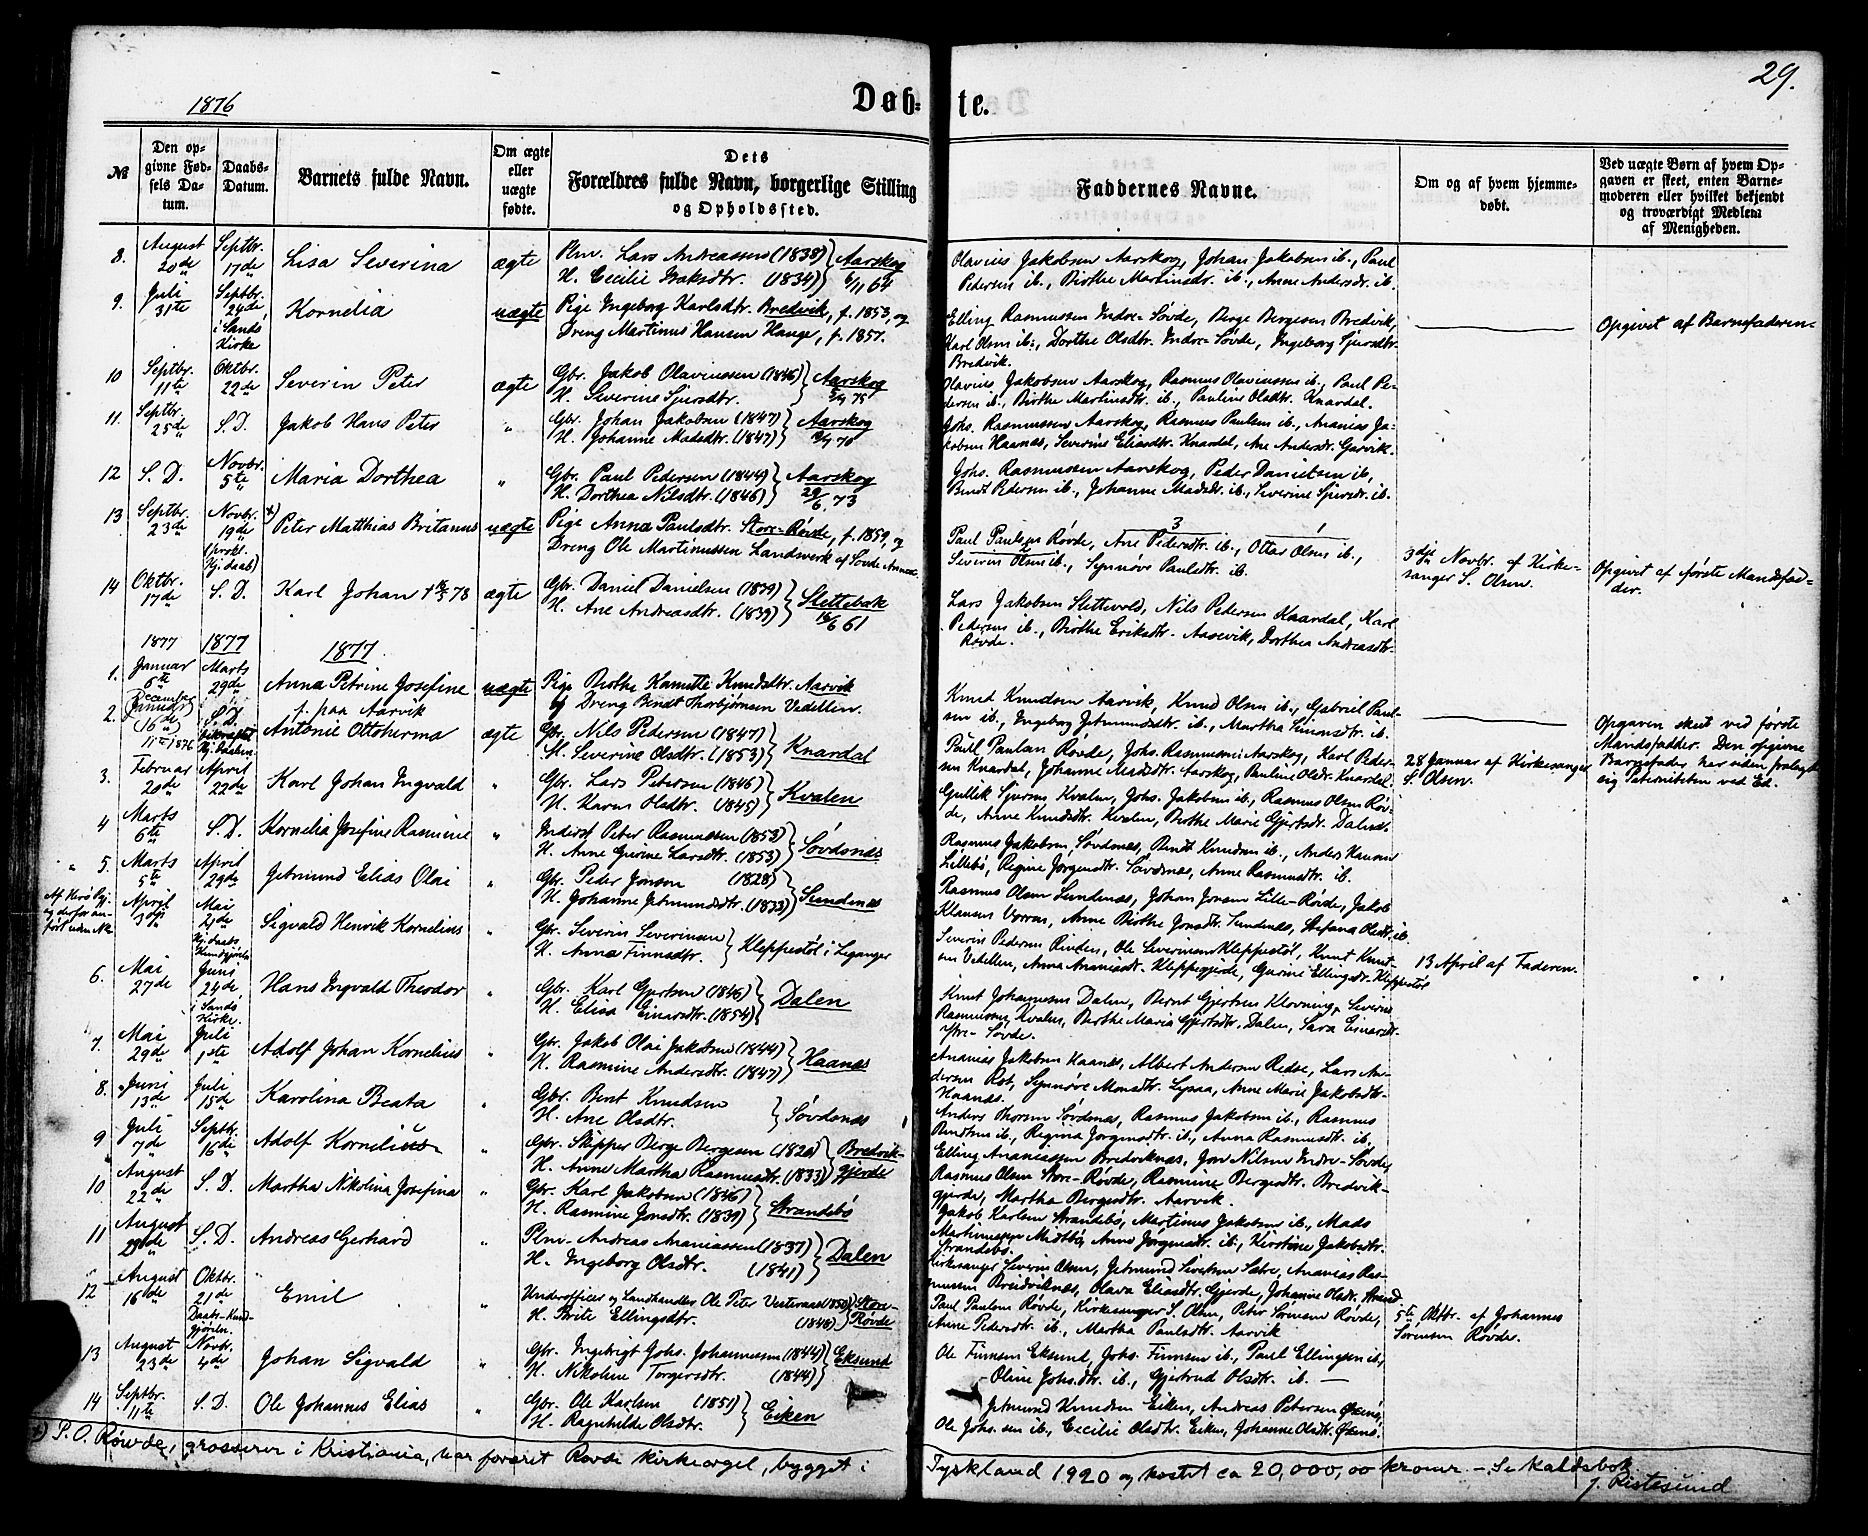 29.
1876
Døbte.
№
Den opgivne Fødsels Datum.
Daabs-Datum.
Barnets fulde Navn.
Om ægte eller uægte fødte.
Dets Forældres fulde Navn, borgerlige Stilling og Opholdssted.
Faddernes Navne.
Om og af hvem hjemmedøbt.
Ved uægte Børn af hvem Opgaven er skeet, enten Barnemoderen eller hvilket bekjendt og troværdigt Medlem af Menigheden.
8. August 20de Septbr. 17de Lisa Severina ægte Plm. Lars Andreassen (1838) H. Cecilie Isaksdtr. (1834) Aarskog 6/11 64
Olavius Jakobsen Aarskog, Johan Jakobsen ib., Paul
Pedersen ib., Birthe Martinsdtr. ib., Anne Andersdtr. ib.
9. Juli 31te Septbr. 24de i Sands Kirke Kornelia uægte Pige Ingeborg Karlsdtr. Bredvik, f. 1853, og
Dreng Martinus Hansen Hauge, f. 1857.
Elling Rasmussen Indre-Søvde, Berge Bergesen Bredvik,
Karl Olsen ib., Dorthe Olsdtr. Indre-Søvde, Ingeborg Sjursdtr.
Bredvik.
Opgivet af Barnefaderen.
10 Septbr. 11te Oktbr. 22de Severin Peter ægte Gbr. Jakob Olaviussen (1846) H. Severine Sjursdtr. Aarskog
Olavius Jakobsen Aarskog, Rasmus Olaviussen ib., Paul Pe-
dersen ib., Birthe Martinsdtr. ib., Pauline Olsdtr. Knardal.
11. Septbr. 25de S.D. Jakob Hans Peter " Gbr. Johan Jakobsen (1847) H. Johanne Madsdtr. (1847) Aarskog
Johs. Rasmussen Aarskog, Rasmus Paulsen ib., Ananias Ja-
kobsen Haanes, Severine Eliasdtr. Knardal, Ane Andersdtr. Gjærvik.
12 S.D. Novbr. 5te Maria Dorthea " Gbr. Paul Pedersen (1844) H. Dorthea Nilsdtr. (1846) Aarskog 29/6 73
Johs. Rasmussen Aarskog, Peder Danielsen ib.,
Bendt Pedersen ib., Johanne Madsdtr. ib., Severine Sjursdtr. ib.
13 Septbr. 23de Novbr. 19de (prokl. Hj.daab) +) Peter Matthias Britanus uægte Pige Anna Paulsdtr. Store-Røvde, f. 1859, og
Dreng Ole Martinussen Landmerk af Søvde Annex
Paul Paulsen Røvde, Ane Pedersdtr. ib., Otter Olsen ib.,
Severin Olsen ib., Synnøve Paulsdtr. ib.
3die Novbr. af Kirke-
sanger S. Olsen.
Opgivet af første Mandsfad-
der.
14 Oktbr. 17de S.D. Karl Johan ægte Gbr. Daniel Danielsen H. Ane Andreasdtr. (1839) Slettebak 16/6 61
Lars Jakobsen Slettevold, Nils Pedersen Knardal, Karl
Pedersen ib., Birthe Eriksdtr. Aasevik, Dorthea Andreasdtr.
Røvde.
1877 1877 1877
1. Januar 6te Marts 29de Anna Petrine Josefine f. paa Aarvik uægte Pige Birthe Kamitte Knudsdtr. Aarvik
og Dreng Bendt Thorbjørnsen Vedellen.
Knud Knudsen Aarvik, Knud Olsen ib., Gabriel Paul-
sen ib., Ingeborg Jetmundsdtr. ib., Martha Simonsdtr. ib.
Opgaven skeet ved første
Mandsfadder. Den opgivne
Barnefader har siden fralagt
sig Paterniteten ved Ed.
2. December (Januar) (16de) 11te 1876 S.D. Antonie Ottoherma ægte Gbr. Nils Pedersen (1847) H. Severine Olsdtr. (1853) Knardal
Paul Paulsen Røvde, Johs. Rasmussen Aarskog, Karl Peder-
sen Knardal, Johanne Madsdtr. Aarskog, Pauline Olsdtr. Knardal.
28 Januar af Kirkesanger
S. Olsen.
3. Februar 20de April 22de Karl Johan Ingvald " Gbr. Lars Petersen (1846) H. Karen Olsdtr. (1845) Kvalen
Gullik Sjursen Kvalen, Johs. Jakobsen ib., Rasmus Olsen Røv-
de, Anne Knudsdtr. Kvalen, Birthe Marie Gjertsdtr. Dalen.
4 Marts 6te S.D. Kornelia Josefine Rasmine " Inderst Peter Rasmussen (1853) H. Anne Gurine Larsdtr. (1853) Søvdsnes
Rasmus Jakobsen Søvdsnes, Bendt Knudsen ib., Anders Hansen
Lillebø, Regine Jørgensdtr. Søvdsnes, Anne Rasmusdtr. ib.
5. Marts 5te April 29de Jetmund Elias Olai " Gbr. Peder Jonsen (1828) H. Johanne Jetmundsdtr. (1833) Sundnes
Rasmus Olsen Sundenes, Johan Jonsen Lille-Røvde, Jakob
Klausen Vorren, Anne Birthe Jonsdtr. Sundenes, Stefana Olsdtr. ib.
Af Herø Pgj. og derfor an-
ført uden No. April 3die Mai 21de Hj.daabs Kundgjørelse Sigvald Henrik Kornelius " Gbr. Severin Severinsen H. Anne Finnsdtr. Kleppestøl i Leganger
Severin Pedersen Rinden, Ole Severinsen Kleppestøl, Knut Knut-
sen Vedellen, Anna Ananiasdtr. Kleppegjerde, Gurine Ellingsdtr. Kleppestøl
13 April af Faderen.
6. Mai 27de Juni 24de i Sands Kirke. Hans Ingvald Theodor " Gbr. Karl Gjertsen (1846) H. Elisa Einarsdtr. (1854) Dalen
Knut Johannesen Dalen, Bernt Gjertsen Klovning, Severin
Rasmussen Kvalen, Birthe Maria Gjertsdtr. Dalen, Sara Einarsdt.
Ytre-Søvde.
7. Mai 29de Juli 1ste Adolf Johan Kornelius " Gbr. Jakob Olai Jakobsen (1844) H. Rasmine Andersdtr. (1847) Haanes
Ananias Jakobsen Haanes, Albert Andersen Redse, Lars An-
dersen Rot, Synnøve Monsdtr. Lysaa, Anne Marie Jakobsdtr.
Haanes.
8. Juni 13de Juli 15de Karolina Beata " Gbr. Bent Knudsen H. Ane Olsdtr. Søvdsnes
Anders Thorsen Søvdsnes, Rasmus Jakobsen ib., Rasmus
Bendtsen ib., Regina Jørgensdtr. ib., Anna Rasmusdtr. ib.
9 Juli 7de Septbr. 16de Adolf Kornelius " Gbr. Skipper Berge Bergesen H. Anne Martha Rasmusdtr. (1833) Bredvik-
gjerde
Elling Ananiassen Bredviknes, Jon Nilsen Indre-Søvde,
Rasmus Olsen Store-Røvde, Rasmine Bergesdtr. Bredvik-
gjerde, Martha Bergesdtr. Aarvik.
10 August 22de S.D. Martha Nikolina Josefina " Gbr. Karl Jakobsen (1846) H. Rasmine Jonsdtr. (1839) Strandebø
Jakob Karlsen Strandebø, Martinus Jakobsen ib., Mads
Martinussen Midtbø, Anne Jørgensdtr. ib., Kirstine Jakobsdtr.
Strandebø.
11 August 29de S.D. Andreas Gerhard " Plm. Andreas Ananiassen (1837) H. Ingeborg Olsdtr. (1841) Dalen
Kirkesanger Severin Olsen, Jetmund Sivertsen Sætre, Ananias Ras-
mussen Breidviknes, Olava Eliasdtr. Gjerde, Johanne Olsdtr. Strand
12 August 16de Oktbr. 21de Daabs-Kund-
gjørelse. Emil " Underofficer og Landhandler Ole Peter Vestervand (1850) H. Brite Ellingsdtr. (1848) Store-
Røvde
Paul Paulsen Røvde, Kirkesanger S. Olsen, Peter Sørensen Røvde,
Anne Pedersdtr. ib., Martha Paulsdtr. Aarvik
5te Oktbr. af Johannes
Sørensen Røvde.
13 August 23de Novbr. 4de Johan Sigvald " Gbr. Ingebrigt Johs. Johannesen (1844) H. Nikoline Torgersdtr. (1844) Eksund
Ole Finnsen Eksund, Johs. Finnsen ib., Paul Ellingsen ib.,
Oline Johs.dtr. ib., Gjertrud Olsdtr. ib.
14 Septbr. 11te S.D. Ole Johannes Elias " Gbr. Ole Karlsen (1851) H. Ragnhilde Olsdtr. Eiken
Jetmund Knudsen Eiken, Andreas Petersen Øxnes,
Ole Johs.sen ib., Cecilie Olsdtr. Eiken, Johanne Olsdtr. Øxnes.
+) P.O. Røwde, grosserer i Kristiania, har foræret Rovde kirkeorgel, bygget i Tyskland 1920 og kostet ca 20,000,00 kroner. - Se Kaldsbok
J. Ristesund